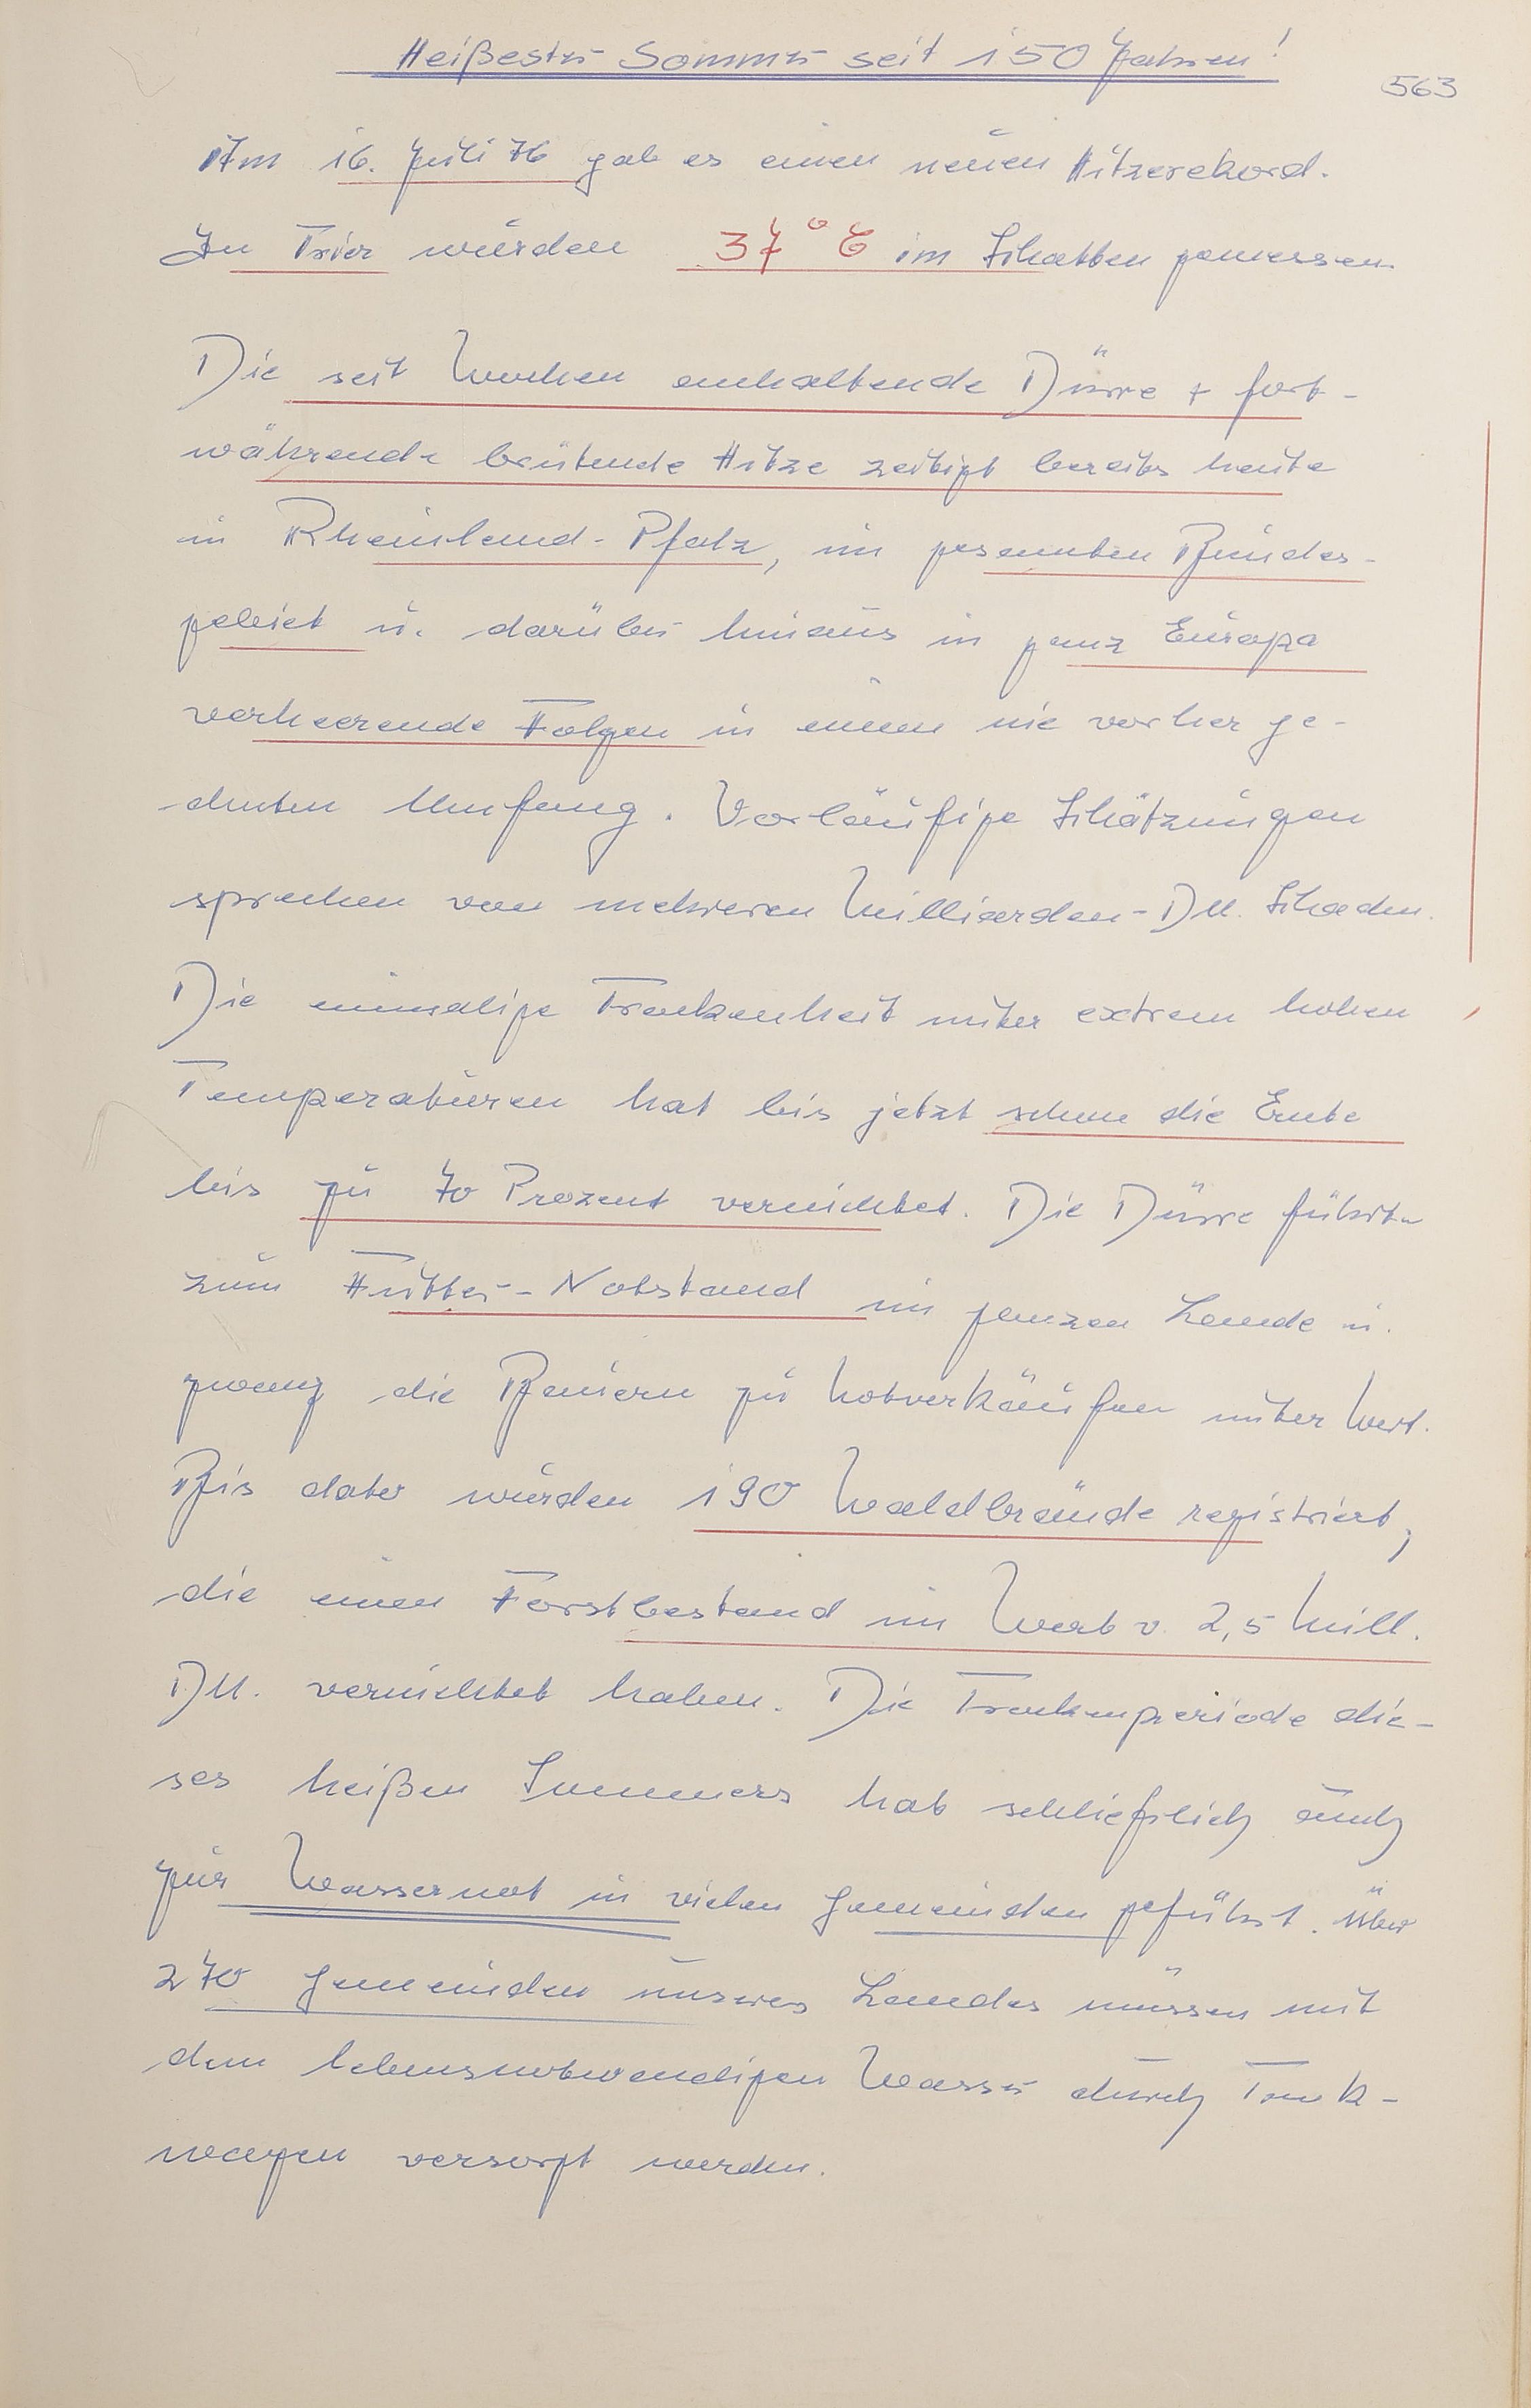 Heißester Sommer seit 150 Jahren!
563
Am 16. Juli 76 gab es einen neuen Hitzerekord.
In Trier wurden 37° C im Schatten gemessen.
Die seit Wochen anhaltende Dürre + fort-
währende brütende Hitze zeitigt bereits heute
in Rheinland-Pfalz, im gesamten Bundes-
gebiet u. darüber hinaus in ganz Europa
verheerende Folgen in einem nie vorher ge-
ahnten Umfang. Vorläufige Schätzungen
sprechen von mehreren Milliarden-DM. Schaden.
Die einmalige Trockenheit unter extrem hohen
Temperaturen hat bis jetzt schon die Ernte
bis zu 70 Prozent vernichtet. Die Dürre führte
zum Futter-Notstand im ganzen Lande u.
zwang die Bauern zu Notverkäufen unter Wert.
Bis dato wurden 190 Waldbrände registriert,
die einen Forstbestand im Wert v. 2,5 Mill.
DM. vernichtet haben. Die Trockenperiode die-
ses heißen Sommers hat schließlich auch
zur Wassernot in vielen Gemeinden geführt. Über
270 Gemeinden unseres Landes müssen mit
dem lebensnotwendigen Wasser durch Tank-
wagen versorgt werden.